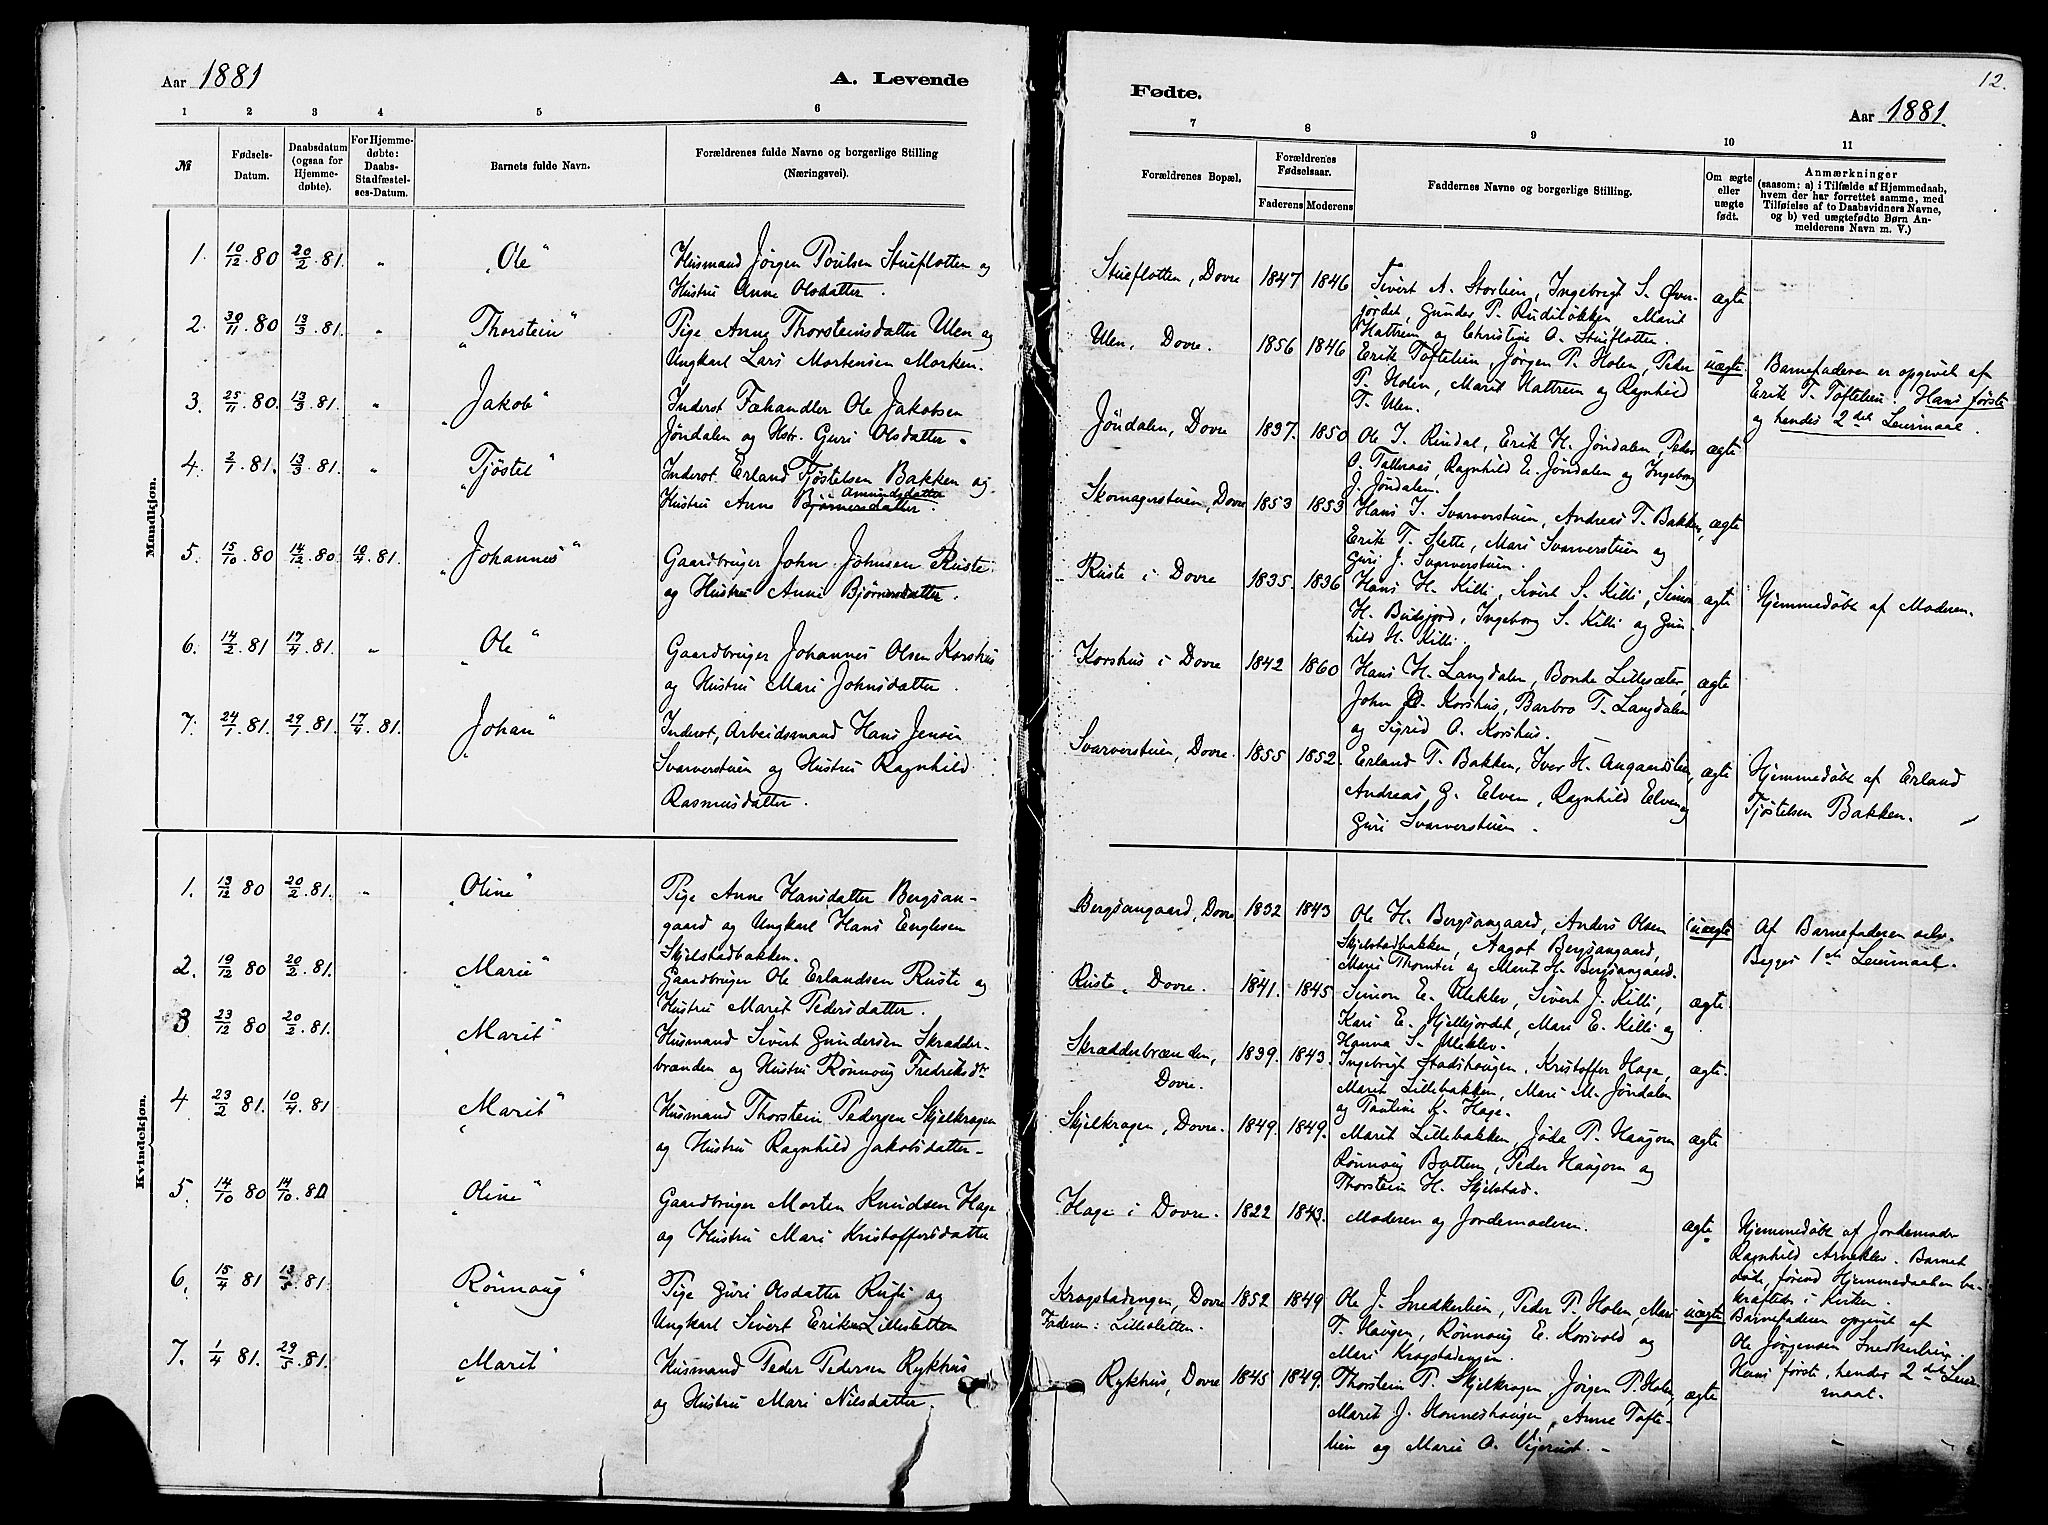 12.
Aar 1881
A. Levende
Fødte.
Aar 1881.
1 2 3 4 5 6
7 8 9 10 11
№
Fødsels-
Datum.
Daabsdatum
(ogsaa for
Hjemme-
døbte).
For Hjemme-
døbte:
Daabs-
Stadfæstel-
ses-Datum.
Barnets fulde Navn.
Forældrenes fulde Navne og borgerlige Stilling
(Næringsvei).
Forældrenes Bopæl.
Forældrenes
Fødselsaar.
Faderens Moderens
Faddernes Navne og borgerlige Stilling.
Om ægte
eller
uægte
født.
Anmærkninger
(saasom: a) i Tilfælde af Hjemmedaab,
hvem der har forrettet samme, med
Tilføielse af to Daabsvidners Navne,
og b) ved uægtefødte Børn An-
melderens Navn m. V.)
Mandkjøn.
1. 10/12. 80 20/2. 81. " "Ole"
Husmand Jörgen Poulsen Stueflotten og
Hustru Anne Olsdatter.
Stueflotten, Dovre 1847 1846
Sivert A. Storlien, Ingebrigt S. Øver-
jordet, Gunder P. Rudiløkken Marit
Hattrem og Christine O. Stueflotten.
ægte
2. 30/11. 80 13/3. 81. " "Thorstein"
Pige Anne Thorsteinsdatter Ulen og
Ungkarl Lars Mortensen Morken.
Ulen, Dovre. 1856 1846
Erik Toftelien, Jörgen P. Holen, Peder
P. Holen, Marit Hattrem og Ragnhild
T. Ulen.
uægte
Barnefaderen er opgivet af
Erik T. Toftelien. Hans første
og hendes 2det Leiermaal.
3. 25/11. 80. 13/3. 81. " "Jakob"
Inderst Fæhandler Ole Jakobsen
Jöndalen og Hstr. Guri Olsdatter.
Jöndalen, Dovre 1837. 1850
Ole J. Rindal, Erik H. Jöndalen, Peder
O. Talleraas, Ragnhild E. Jöndalen og Ingeborg
J. Jöndalen.
ægte
4. 2/1. 81. 13/3. 81. " "Tjöstel"
Inderst Erland Tjöstelsen Bakken og
Hustru Anne Bjørnersdatter. Amundsdatter
Skomagerstuen, Dovre 1853 1853
Hans J. Svarverstuen, Andreas T. Bakken,
Erik T. Slette, Mari Svarverstuen og
Guri J. Svarverstuen.
ægte
5. 15/10. 80 14/12. 80 10/4. 81. "Johannes"
Gaardbruger John Johnsen Ruste
og Hustru Anne Bjørnersdatter.
Ruste i Dovre 1835. 1836
Hans H. Killi, Sivert S. Killi, Simon
H. Builsjord, Ingeborg S. Killi og Gun-
hild H. Killi.
ægte
Hjemmedøbt af Moderen.
6. 14/2. 81 17/4. 81. " "Ole"
Gaardbruger Johannes Olsen Korshus
og Hustru Mari Johnsdatter.
Korshus i Dovre 1842 1860
Hans H. Langdalen, Bonde Lillesæter,
John O. Korshus, Barbro T. Langdalen
og Sigrid O. Korshus.
ægte
7. 24/1. 81. 29/1. 81. 17/4. 81. "Johan"
Inderst, Arbeidsmand Hans Jensen
Svarverstuen og Hustru Ragnhild
Rasmusdatter.
Svarverstuen, Dovre. 1855 1852.
Erland T. Bakken, Iver H. Angaardslien,
Andreas G. Elven, Ragnhild Elven og
Guri Svarverstuen.
ægte
Hjemmedøbt af Erland
Tjöstelsen Bakken.
Kvindekjøn.
1. 13/12 80 20/2. 81. " "Oline"
Pige Anne Hansdatter Bergsan-
gaard og Ungkarl Hans Englesen
Skjelstadbakken.
Bergsangaard, Dovre 1832 1843
Ole H. Bergsangaard, Anders Olsen
Skjelstadbakken, Aagot Bergsangaard,
Maris Thornter og Marit H. Bergsangaard.
uægte
Af Barnefaderen selv.
Begges 1ste Leiermaal.
2. 19/12 80 20/2. 81. "Marie"
Gaardbruger Ole Erlandsen Ruste og
Hustru Marit Pedersdatter.
Ruste, Dovre. 1841. 1845
Simon E. Uleklev, Sivert J. Killi,
Kari E. Hjellejordet, Mari E. Killi og
Hanna S. Uleklev.
ægte.
3 23/12 80 20/2. 81. "Marit"
Husmand Sivert Gundersen Skrædder-
brænden og Hustru Rönnoug Fredriksdtr
Skrædderbrænden,
Dovre. 1839. 1843.
Ingebrigt Stadshaugen, Kristoffer Hage,
Marit Lillebakken, Mari M. Jöndalen
og Pauline K. Hage.
ægte.
4 23/2 81. 10/4. 81 "Marit"
Husmand Thorstein Pedersen Skjelkragen
og Hustru Ragnhild Jakobsdatter.
Skjelkragen, Dovre. 1849. 1849.
Marit Lillebakken, Jöda P. Haagorn
Rönnoug Batten, Peder Haagorn og
Thorstein H. Skjelstad.
ægte
5. 14/10 80 14/10. 80 "Oline"
Gaardbruger Morten Knudsen Hage
og Hustru Mari Kristoffersdatter
Hage i Dovre. 1822 1843.
Moderen og Jordemoderen.
ægte
Hjemmedøbt af Jordemoder
Ragnhild Arneklev. Barnet
døde, førend Hjemmedaaben be-
kræftedes i Kirken.
6. 15/4 81 13/5. 81. "Rönnaug"
Pige Guri Olsdatter Ruste og
Ungkarl Sivert Eriksen Lillesletten
Kragstadengen, Dovre 1852 1849
Faderen: Lillesletten.
Ole J. Snedkerlien, Peder P. Holen, Mari
T. Haugen, Rönnoug E. Korsvold og
Mari Kragstadengen.
uægte
Barnefaderen opgivet af
Ole Jörgensen Snedkerlien.
Hans første, hendes 2det Leier-
maal.
7. 1/4 81. 29/5. 81. "Marit"
Husmand Peder Pedersen Rykhus
og Hustru Mari Nilsdatter.
Rykhus, Dovre 1845 1849.
Thorstein P. Skjelkragen, Jörgen P. Holen,
Marit J. Honneshaugen, Anne Tofte-
lien og Marie O. Vigerust.
ægte